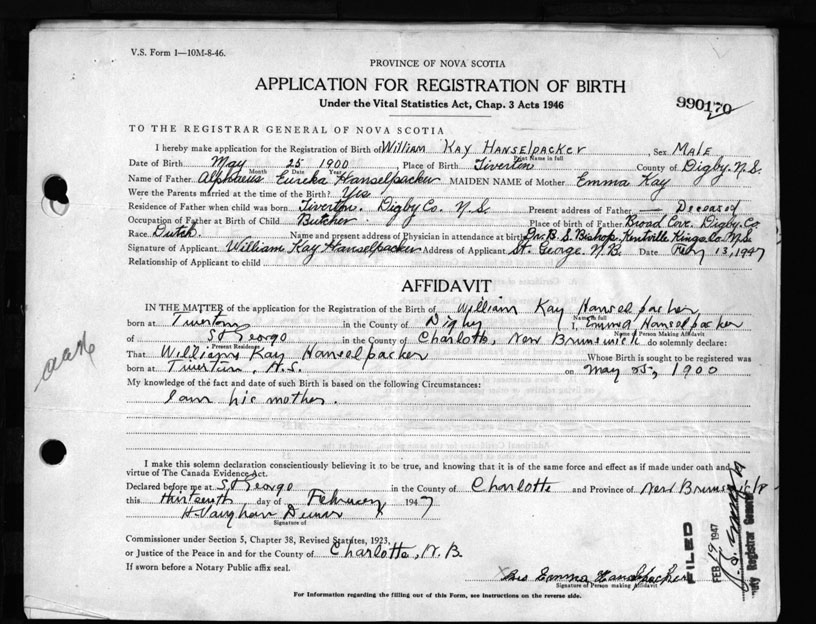 V.S. Form 1—10M-8-46.
PROVINCE OF NOVA SCOTIA
APPLICATION FOR REGISTRATION OF BIRTH
Under the Vital Statistics Act, Chap. 3 Acts 1946
990170
TO THE REGISTRAR GENERAL OF NOVA SCOTIA
I hereby make application for the Registration of Birth of William Kay Hanselpacker Sex Male
Print Name in full
Date of Birth May 25 1900 Place of Birth Tiverton County of Digby N.S.
Month Date Year
Name of Father Alphaeus Eureka Hanselpacker MAIDEN NAME of Mother Emma Kay
Were the Parents married at the time of the Birth? Yes
Residence of Father when child was born Tiverton. Digby Co. N.S. Present address of Father — Deceased
Occupation of Father at Birth of Child Butcher Place of birth of Father Broad Cove. Digby. Co.
Race Dutch. Name and present address of Physician in attendance at birth Dr. B. S. Bishop. Kentville Kings Co. N.S.
Signature of Applicant William Kay Hanselpacker Address of Applicant St. George. N.B. Date Feby 13, 1947
Relationship of Applicant to child
AFFIDAVIT
IN THE MATTER of the application for the Registration of the Birth of William Kay Hanselpacker
Name in full
born at Tiverton in the County of Digby I, Emma Hanselpacker
Name of Person Making Affidavit
of St George in the County of Charlotte, New Brunswick do solemnly declare:
Present Residence
That William Kay Hanselpacker Whose Birth is sought to be registered was
born at Tiverton, N.S. on May 25, 1900
My knowledge of the fact and date of such Birth is based on the following Circumstances:
I am his mother.
I make this solemn declaration conscientiously believing it to be true, and knowing that it is of the same force and effect as if made under oath and
virtue of The Canada Evidence Act.
Declared before me at St George in the County of Charlotte and Province of New Brunswick
this thirteenth day of February 1947
H Vaughan
Signature of
Commissioner under Section 5, Chapter 38, Revised Statutes, 1923,
or Justice of the Peace in and for the County of Charlotte, N.B.
If sworn before a Notary Public affix seal.
X Mrs Emma Hanselpacker
Signature of Person making Affidavit
For Information regarding the filling out of this Form, see instructions on the reverse side.
FILED
FEB 19 1947
Registrar General